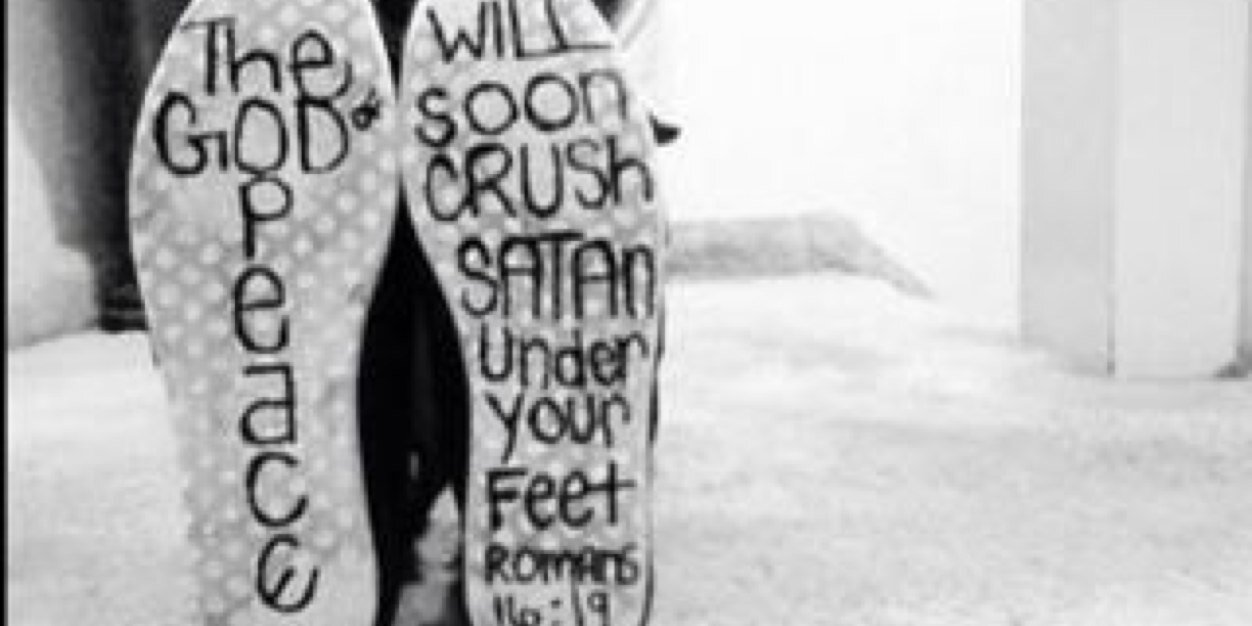 The
GOD
Peace
WILL
soon
CRUSh
SATAn
Under
your
Feet
ROmAns
16:19